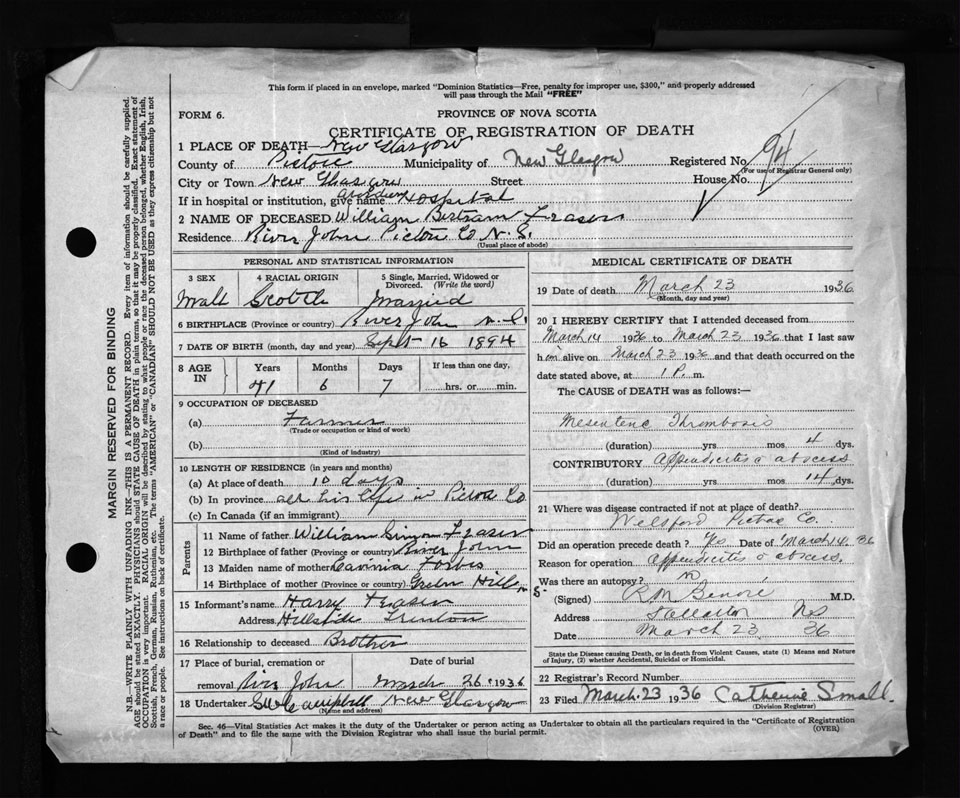 This form if placed in an envelope, marked "Dominion Statistics—Free, penalty for improper use, $300," and properly addressed
will pass through the Mail "FREE"
FORM 6.
PROVINCE OF NOVA SCOTIA
CERTIFICATE OF REGISTRATION OF DEATH
1 PLACE OF DEATH— New Glasgow
County of Pictou Municipality of New Glasgow Registered No. 94
(For use of Registrar General only)
City or Town New Glasgow Street House No.
If in hospital or institution, give name Aberdeen Hospital
2 NAME OF DECEASED William Bertram Fraser
Residence River John Pictou Co N.S.
(Usual place of abode)
MARGIN RESERVED FOR BINDING
N.B.—WRITE PLAINLY WITH UNFADING INK—THIS IS A PERMANENT RECORD. Every item of information should be carefully supplied.
AGE should be stated EXACTLY. PHYSICIANS should STATE CAUSE OF DEATH in plain terms, so that it may be properly classified. Exact statement of
OCCUPATION is very important. RACIAL ORIGIN will be described by stating to what people or race the deceased person belonged, whether English, Irish,
Scottish, French, German, Russian, Ruthenian, etc. The terms "AMERICAN" or "CANADIAN" SHOULD NOT BE USED as they express citizenship but not
a race or people. See instructions on back of certificate.
PERSONAL AND STATISTICAL INFORMATION
3 SEX 4 RACIAL ORIGIN 5 Single, Married, Widowed or
Divorced. (Write the word)
Male Scotch Married
6 BIRTHPLACE (Province or country) River John N.S.
7 DATE OF BIRTH (month, day and year) Sept 16 1894
8 AGE IN Years Months Days If less than one day,
41 6 7 hrs. or min.
9 OCCUPATION OF DECEASED
(a) Farmer
(Trade or occupation or kind of work)
(b)
(Kind of industry)
10 LENGTH OF RESIDENCE (in years and months)
(a) At place of death 10 days
(b) In province all his life in Pictou Co
(c) In Canada (if an immigrant)
Parents
11 Name of father William Simon Fraser
12 Birthplace of father (Province or country) River John
13 Maiden name of mother Forbes
14 Birthplace of mother (Province or country) Hill
15 Informant's name Harry Fraser
Address Hillside Trenton
16 Relationship to deceased Brother
17 Place of burial, cremation or Date of burial
removal River John March 26 1936
18 Undertaker Campbell New Glasgow
(Name and address)
MEDICAL CERTIFICATE OF DEATH
19 Date of death March 23 1936
(Month, day and year)
20 I HEREBY CERTIFY that I attended deceased from
March 14 1936 to March 23 1936 that I last saw
him alive on March 23 1936 and that death occurred on the
date stated above, at 1 P. m.
The CAUSE OF DEATH was as follows:—
Mesenteric Thrombosis
(duration) yrs mos 4 dys.
CONTRIBUTORY Appendicitis & abscess
(duration) yrs mos 14 dys.
21 Where was disease contracted if not at place of death?
Welsford Pictou Co.
Did an operation precede death? Yes Date of March 14, 36
Reason for operation Appendicitis & abscess.
Was there an autopsy? no
(Signed) M.D.
Address Stellarton NS
Date March 23. 36
State the Disease causing Death, or in death from Violent Causes, state (1) Means and Nature
of Injury, (2) whether Accidental, Suicidal or Homicidal.
22 Registrar's Record Number
23 Filed March 23 1936 Catherine Small
(Division Registrar)
Sec. 46—Vital Statistics Act makes it the duty of the Undertaker or person acting as Undertaker to obtain all the particulars required in the "Certificate of Registration
of Death" and to file the same with the Division Registrar who shall issue the burial permit. (OVER)